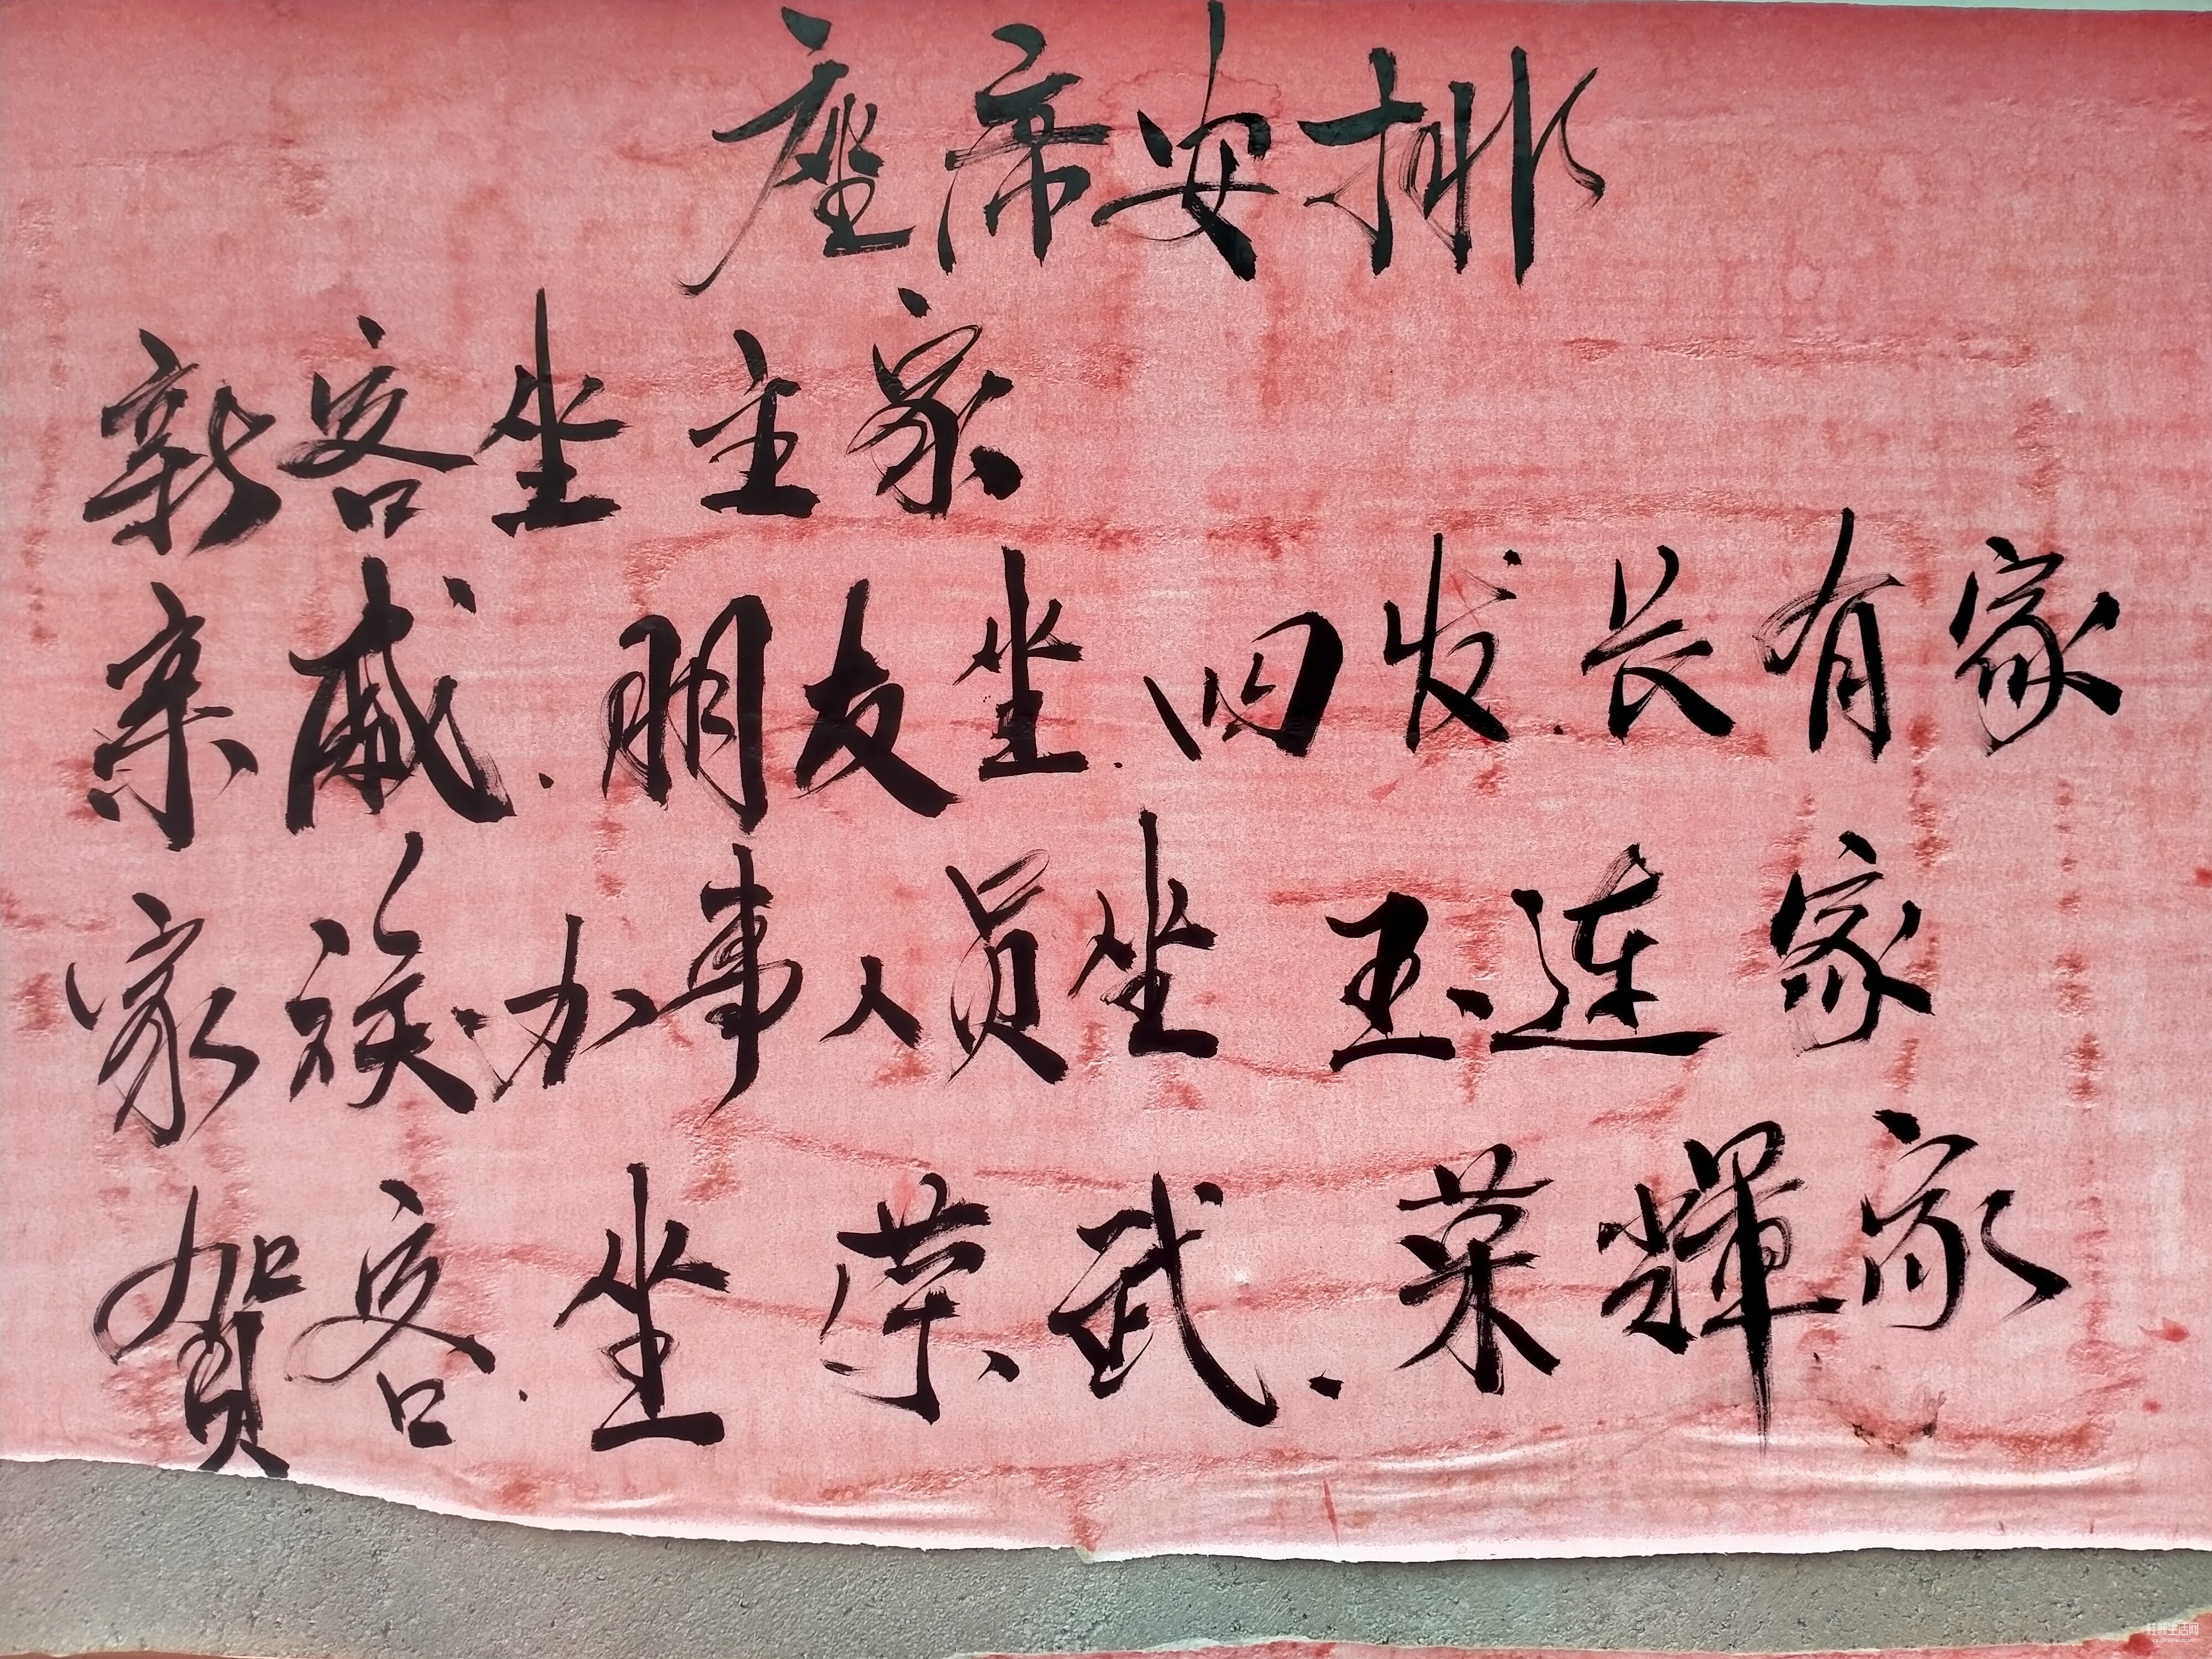 座席安排
新客坐主家
亲戚.朋友坐.四发.长有家
家族.办事人员坐玉连家
贺客.坐荣武.荣輝家